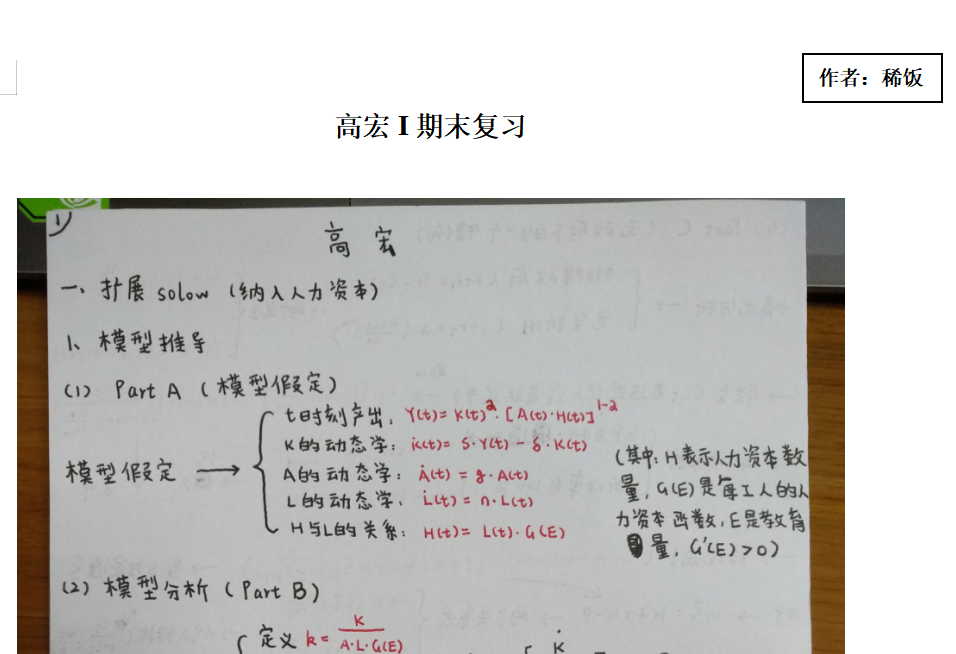 作者：稀饭
高宏 I 期末复习
1
高宏
一、扩展 solow（纳入人力资本）
1、模型推导
(1) Part A（模型假定）
模型假定 →
t时刻产出：Y(t)=K(t)^a·[A(t)·H(t)]^1-a
K的动态学：K̇(t)=S·Y(t)-δ·K(t)
A的动态学：Ȧ(t)=g·A(t)
L的动态学：L̇(t)=n·L(t)
H与L的关系：H(t)=L(t)·G(E)
（其中：H表示人力资本数
量，G(E)是每工人的人
力资本函数，E是教育
量，G'(E)>0）
(2) 模型分析（Part B）
定义 k= K/A·L·G(E)